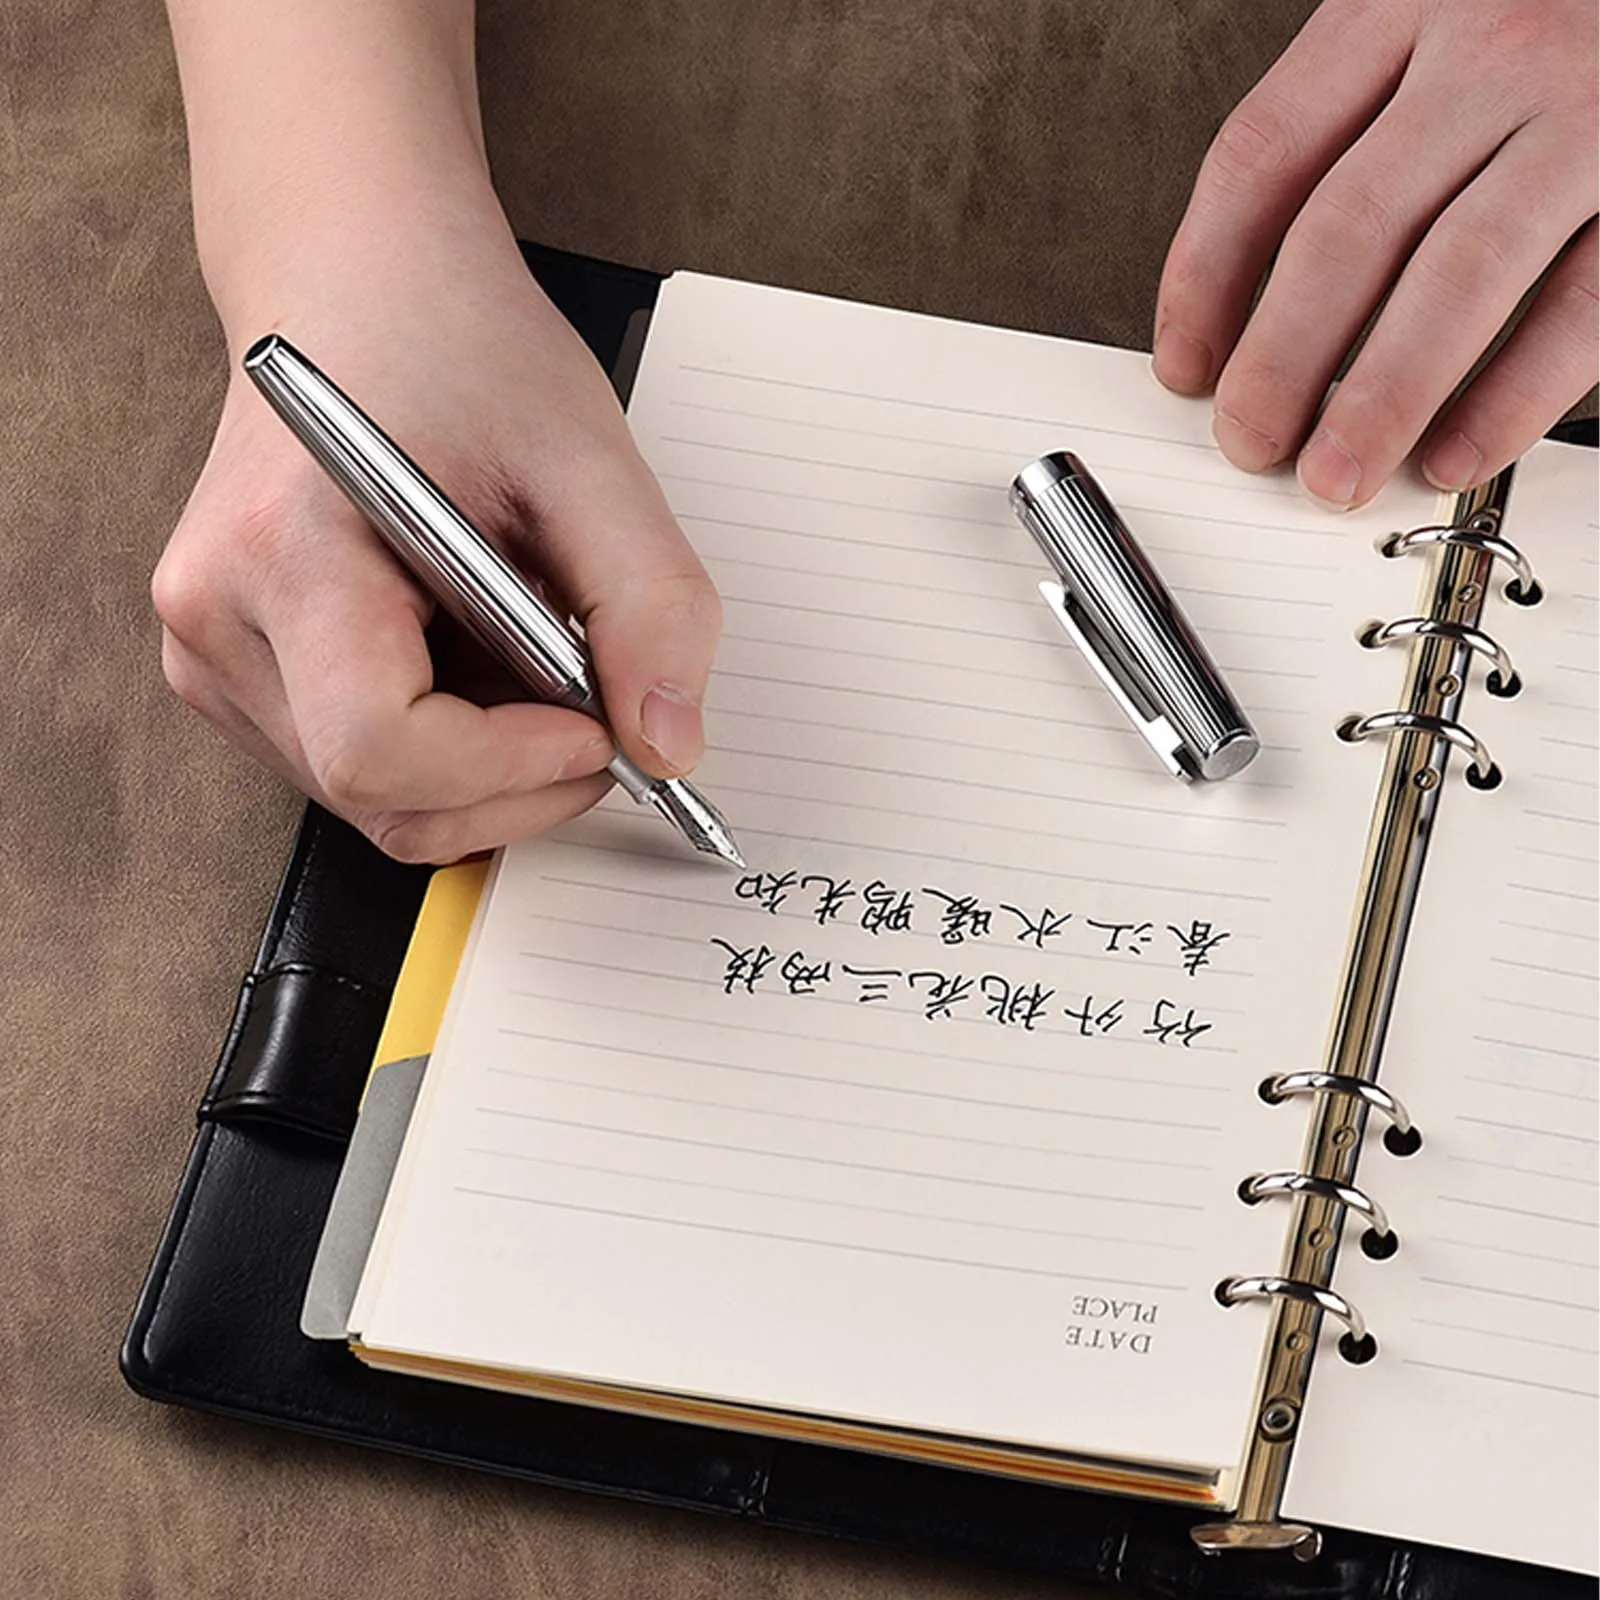 DATE
PLACE
竹外桃花三两枝
春江水暖鸭先知